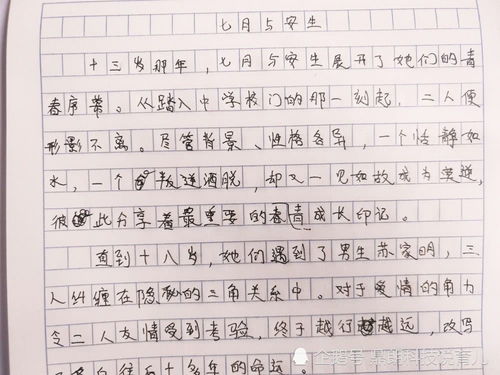 七月与安生
十三岁那年，七月与安生展开了她们的青
春序幕。从踏入中学校门的那一刻起，二人便
形影不离。尽管背景、性格各异，一个恬静如
水，一个叛逆洒脱，却又一见如故成为莫逆，
彼此分享着最重要的春青成长印记。
直到十八岁，她们遇到了男生苏家明，三
人纠缠在隐秘的三角关系中。对于爱情的角力
令二人友情受到考验，终于越行越远，改写
了各自往后十多年的命运。
企鹅号